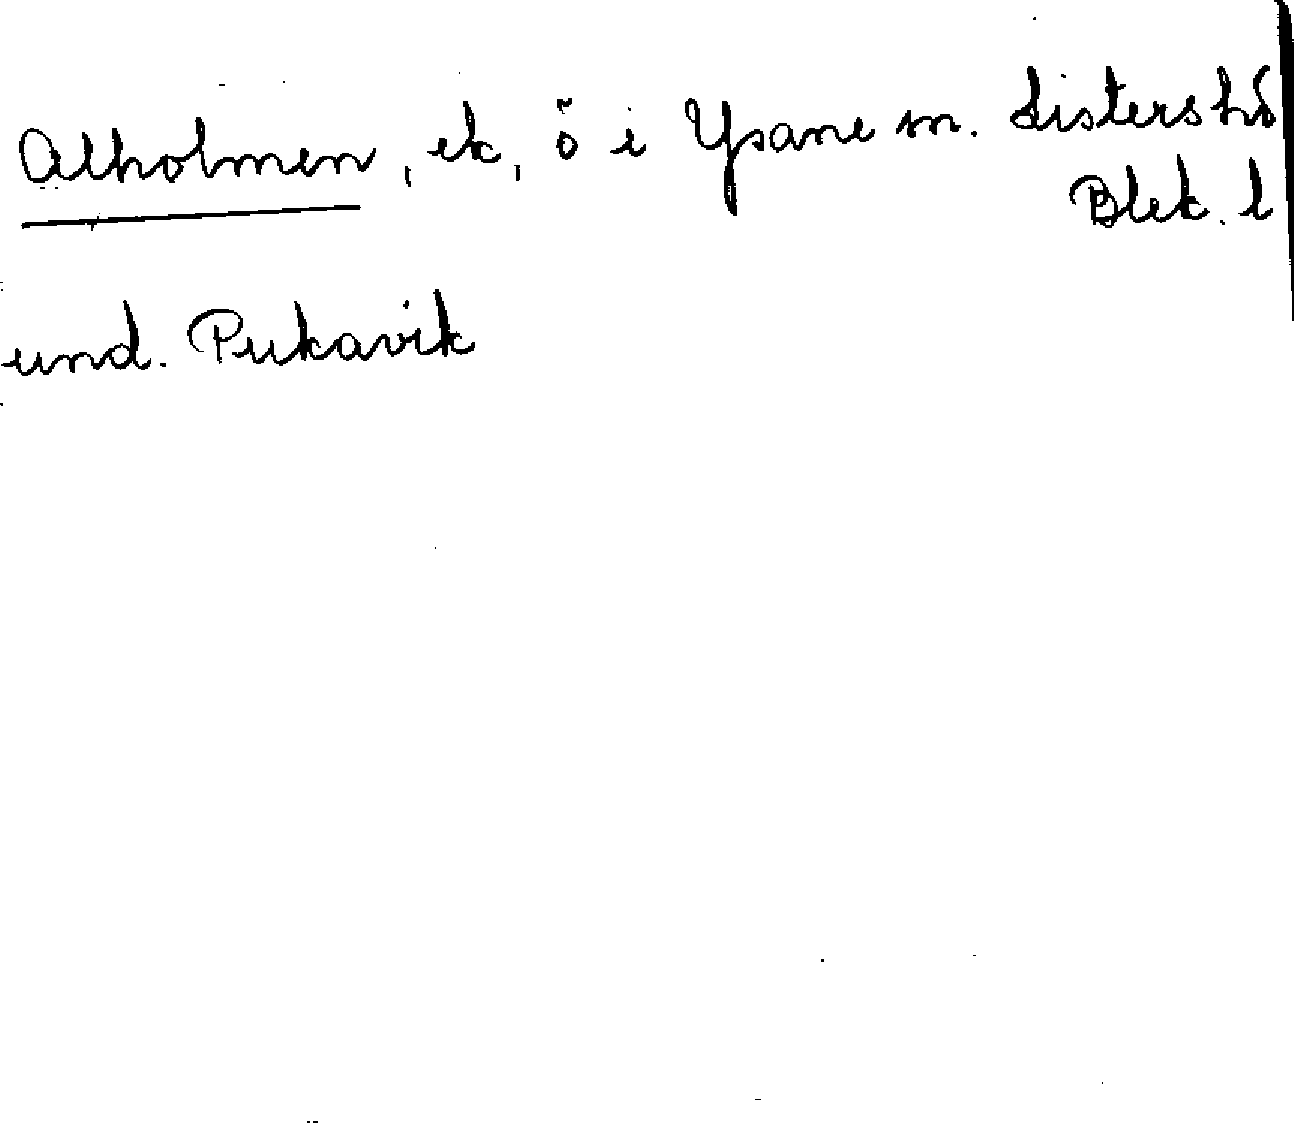 Alholmen, ek, ö i Ysane sn. Listers hd
Blek. l
und. Pukavik